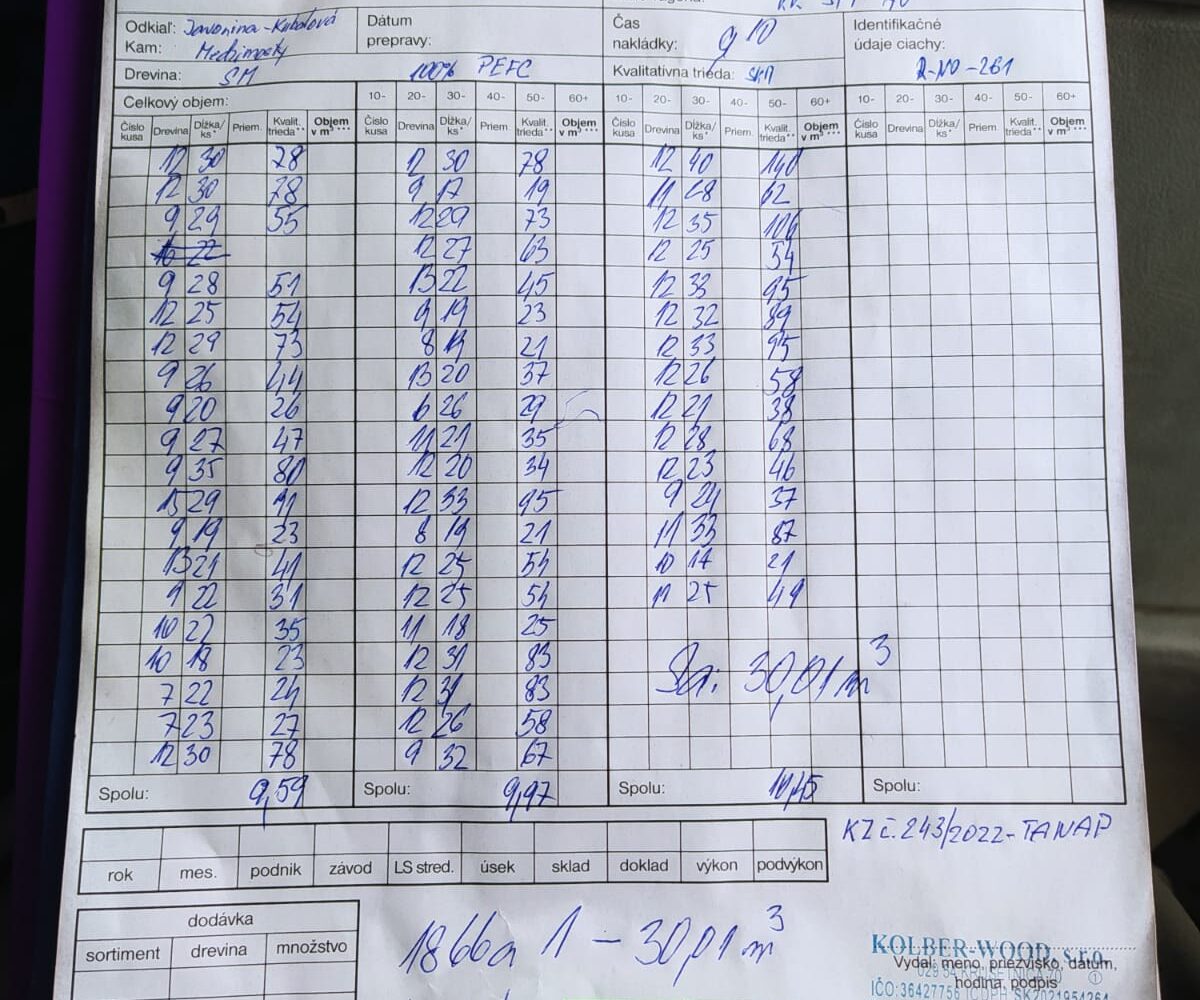 Odkiaľ: Javorina-Kubalová Dátum prepravy: Čas nakládky: 9 10 Identifikačné údaje ciachy:
Kam: Medzimosty
Drevina: SM 100% PEFC Kvalitatívna trieda: R-NO-261
Celkový objem: 10- 20- 30- 40- 50- 60+ 10- 20- 30- 40- 50- 60+ 10- 20- 30- 40- 50- 60+
Číslo kusa Drevina Dĺžka/ks* Priem. Kvalit. trieda** Objem v m³*** Číslo kusa Drevina Dĺžka/ks* Priem. Kvalit. trieda** Objem v m³*** Číslo kusa Drevina Dĺžka/ks* Priem. Kvalit. trieda** Objem v m³*** Číslo kusa Drevina Dĺžka/ks* Priem. Kvalit. trieda** Objem v m³***
12 30 78 12 30 78 12 40 140
12 30 78 9 17 19 11 28 62
9 29 55 12 29 73 12 35 106
12 27 63 12 25 54
9 28 51 13 22 45 12 33 95
12 25 54 9 19 23 12 32 89
12 29 73 8 19 21 12 33 95
9 26 44 13 20 37 12 26 58
9 20 26 6 26 29 12 21 38
9 27 47 11 21 35 12 28 68
9 35 80 12 20 34 12 23 46
15 29 91 12 33 95 9 24 37
9 19 23 8 19 21 11 33 87
13 21 41 12 25 54 10 17 21
9 22 31 12 25 54 11 25 49
10 22 35 11 18 25
10 18 23 12 31 83
7 22 24 12 31 83 Sa: 30,01 m³
7 23 27 12 26 58
12 30 78 9 32 67
Spolu: 9,59 Spolu: 9,97 Spolu: 10,45 Spolu:
KZ č. 243/2022-TANAP
rok mes. podnik závod LS stred. úsek sklad doklad výkon podvýkon
dodávka
sortiment drevina množstvo
1866a 1 - 30,01 m³
KOLBER-WOOD, s.r.o.
Vydal: meno, priezvisko, dátum,
hodina, podpis
IČO:36427756